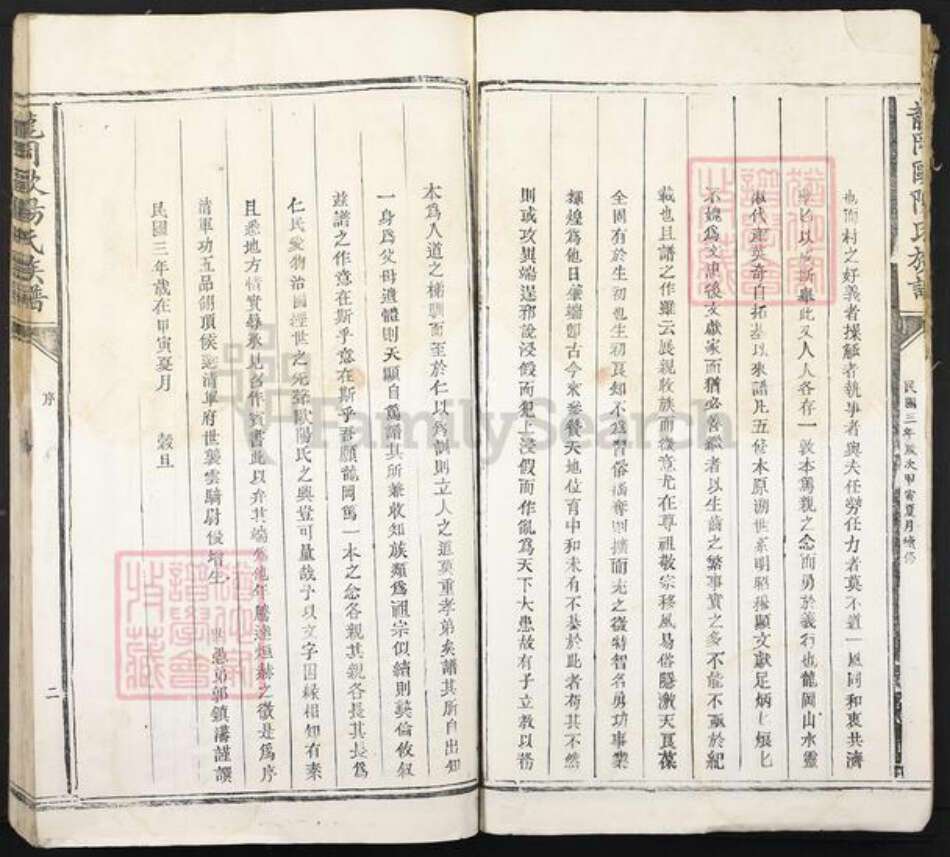 龍岡歐陽氏族譜
民國三年歲次甲寅夏月續修
也而村之好義者操觚者執事者與夫任勞任力者莫不道一風同和衷共濟
以斯舉此又人人各存一敦本篤親之念而勇於義行也龍岡山水靈
淑代產英奇自拓基以來譜凡五修本原溯世系明昭穆顯文獻足炳匕烺匕
不媿為文忠後文獻家而猶必善繼者以生齒之繁事實之多不能不亟於紀
載也且譜之作雖云展親收族而微意尤在尊祖敬宗移風易俗隱激天良葆
全固有於生初也生初良知不為習俗攘奪則擴而充之從特智名勇功事業
輝煌為他日肇端即古今來參贊天地位育中和未有不基於此者苟其不然
則或攻異端逞邪說浸假而犯上浸假而作亂為天下大患故有子立教以務
本為人道之梯馴而至於仁以為訓則立人之道莫重孝弟矣譜其所自出知
一身為父母遺體則天顯自篤譜其所兼收知族類為祖宗似續則彝倫攸敘
茲譜之作意在斯乎意在斯乎吾願龍岡篤一本之念各親其親各長其長為
仁民愛物治國經世之兆歐陽氏之興豈可量哉予以文字因緣相知有素
且悉地方情實辱承見召作賓書此以弁其端為他年騰達烜赫之徵是為序
清軍功五品翎頂侯選清軍府世襲雲騎尉優增生 愚弟郭鎮藩謹譔
民國三年歲在甲寅夏月 穀旦
龍岡歐陽氏族譜
序
二
FamilySearch